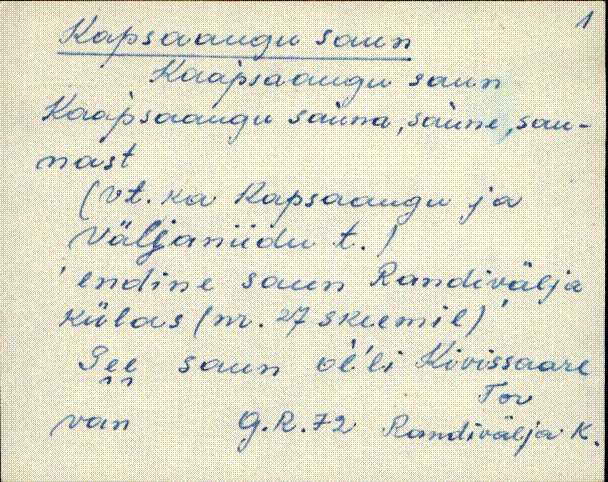 1
Kapsaaugu saun
Kaapsaaugu saun
Kaapsaaugu sauna, saune, sau-
nast
(vt. ka Kapsaaugu ja
Väljaniidu t.)
'endine saun Randivälja
külas (nr. 27 skeemil)'
See saun ol'li Kivissaare
Tor
van G.R.72 Randivälja K.